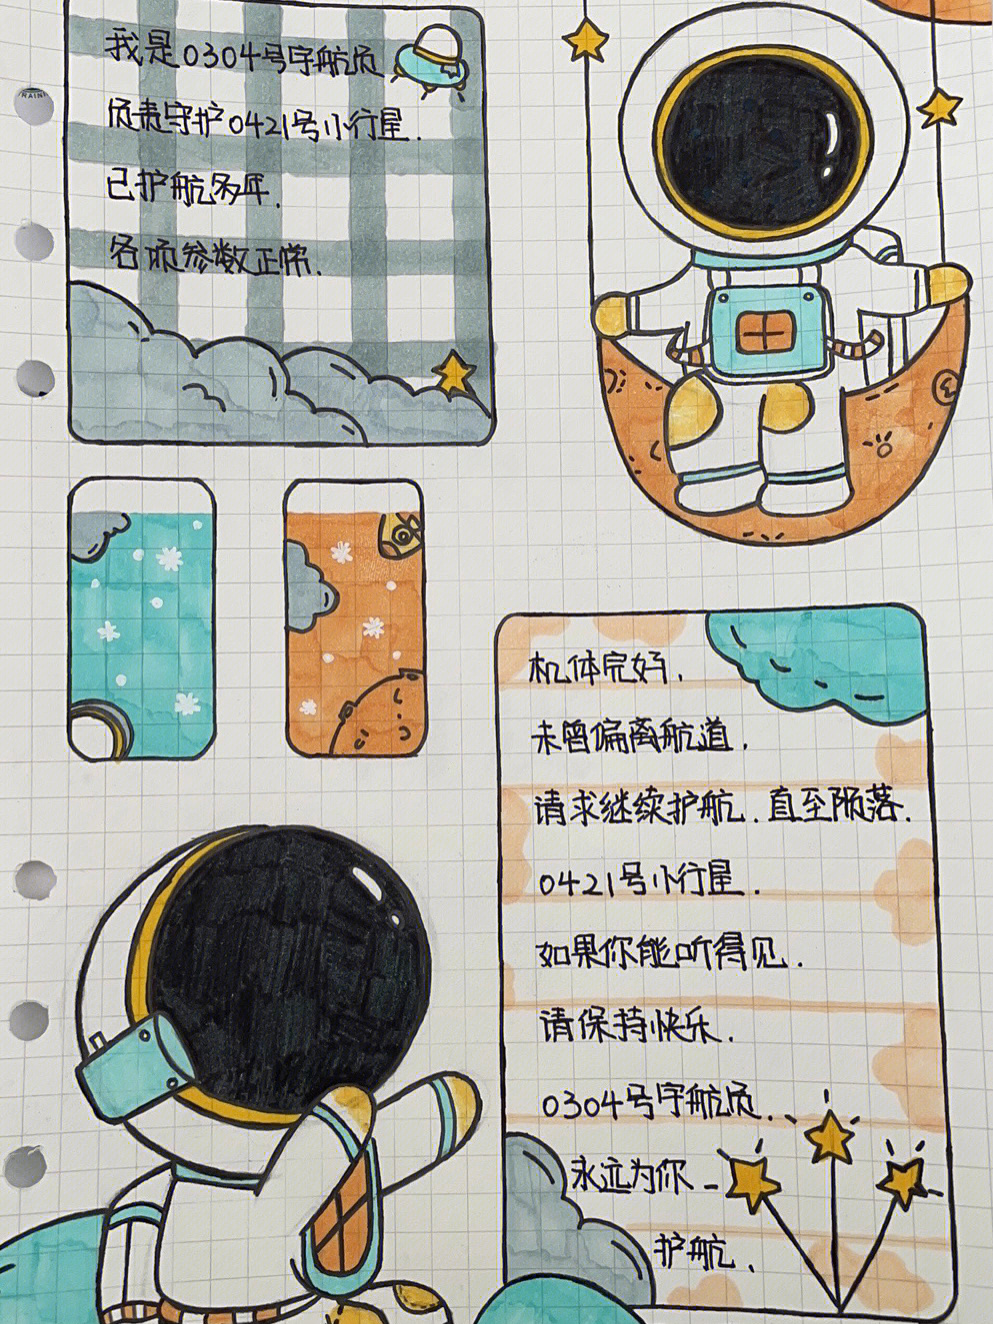 我是0304号宇航员,
负责守护0421号小行星.
已护航多年.
各项参数正常.
机体完好.
未曾偏离航道.
请求继续护航.直至陨落.
0421号小行星.
如果你能听得见.
请保持快乐.
0304号宇航员.
永远为你-
护航.